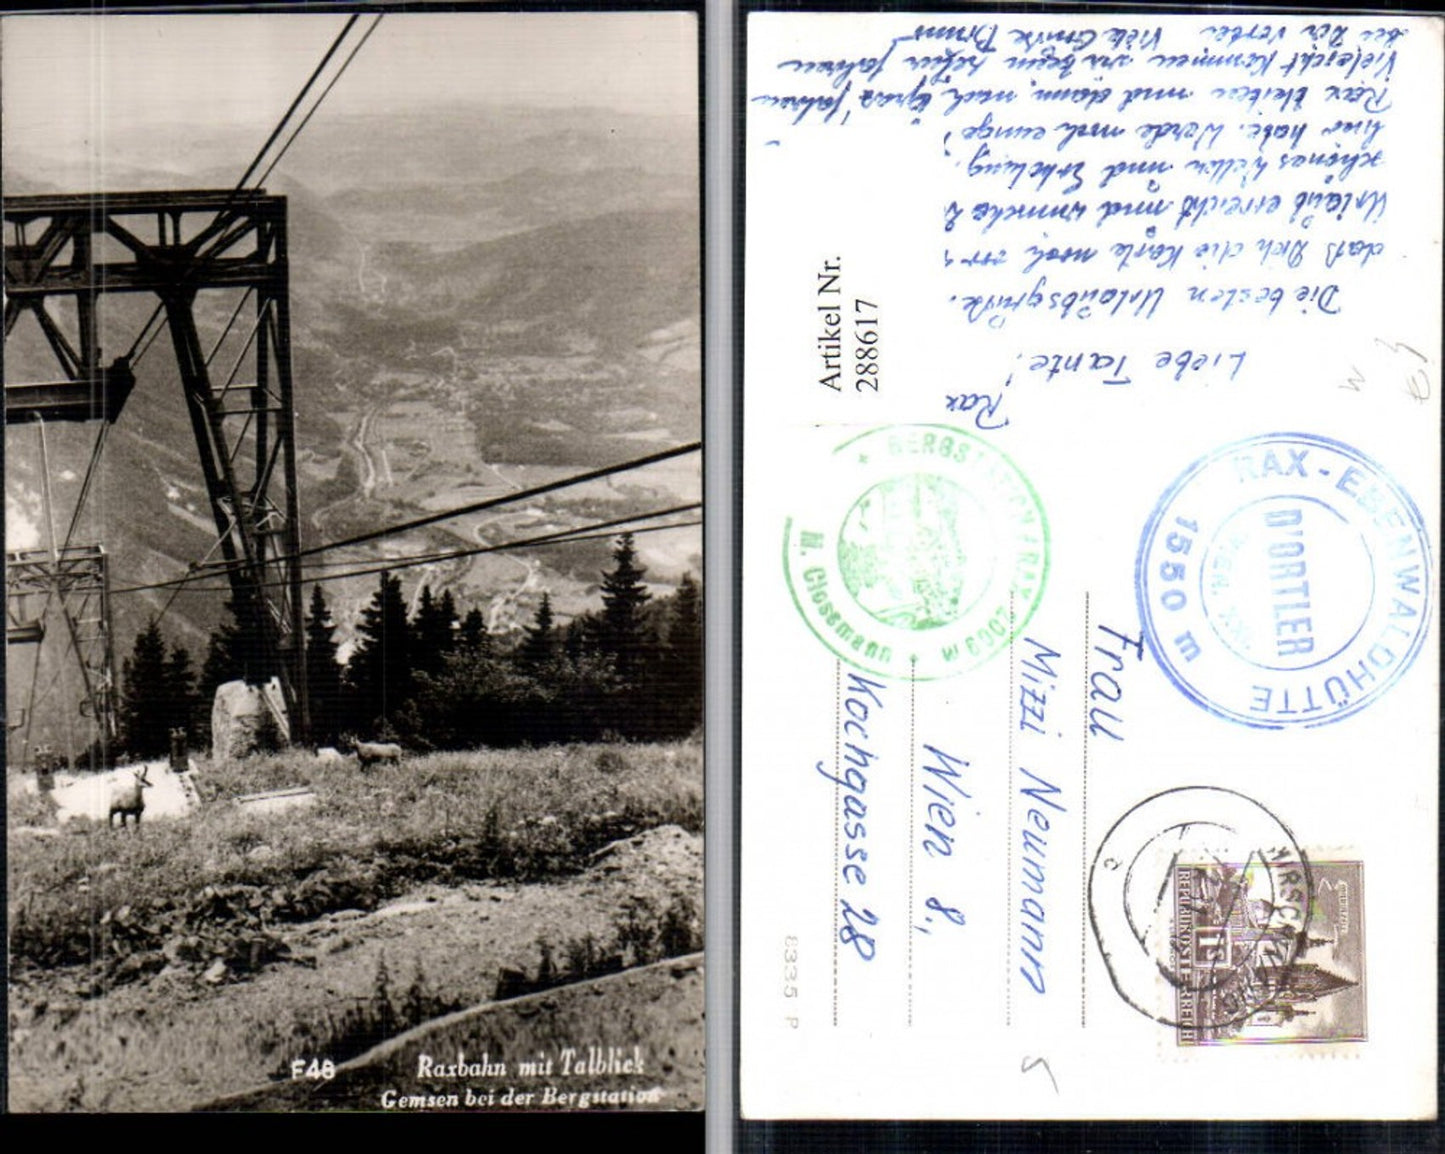 F48
Raxbahn mit Talblick
Gemsen bei der Bergstation
Rax
Liebe Tante!
Die besten Urlaubsgrüße.
daß Dich die Karte noch vor
Urlaub erreicht und wünsche
schönes Wetter und Erholung.
hier habe. Werde noch einige
Rax bleiben und dann nach Graz fahren
Vieleicht kommen wir
bei Dir vorbei Viele Grüße
Artikel Nr.
288617
BERGSTATION RAX
2009 m
M. Glossmann
RAX-EBENWALDHÜTTE
1550 m
D'ORTLER
WIEN
Frau
Mizzi Neumann
Wien 8.,
Kochgasse 28
REPUBLIK ÖSTERREICH
HIRSCHWANG
2
8335 P